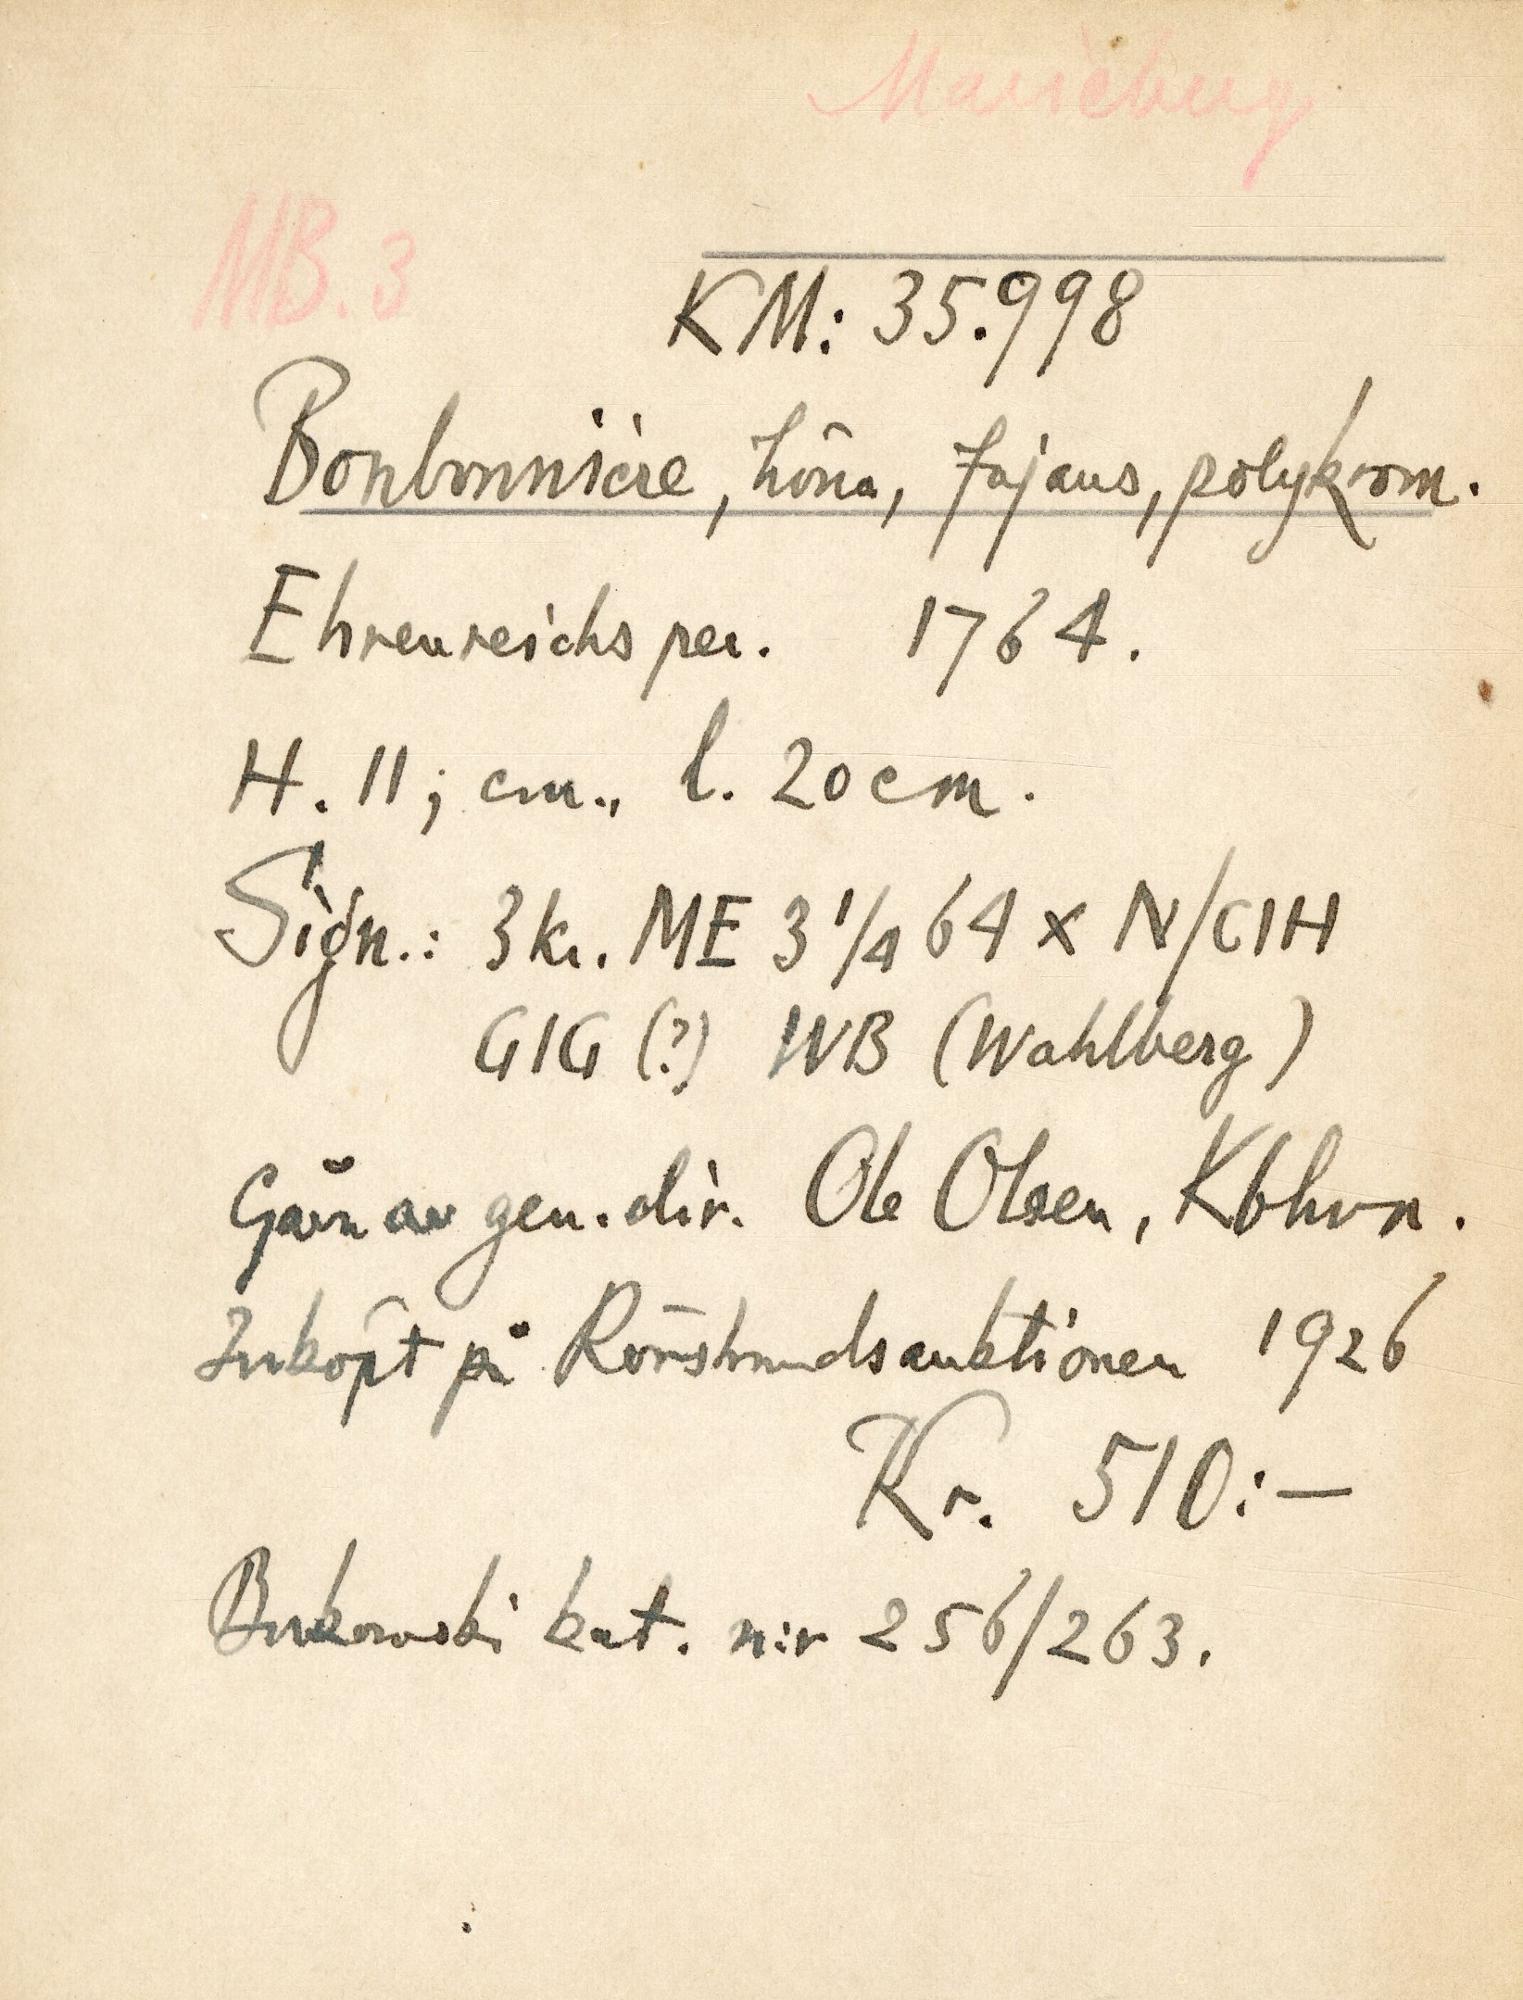 Marieberg
MB. 3
KM: 35.998
Bonbonnière, höna, fajans, polykrom.
Ehrenreichs per. 1764.
H. 11; cm., l. 20 cm.
Sign.: 3 kr. ME 3 1/4 64 x N/CIH
GIG (?) WB (Wahlberg)
Gåva av gen. dir. Ole Olsen, Kbhvn.
Inköpt på Rörstrandsauktionen 1926
Kr. 510:—
Bukowski kat. n:r 256/263.